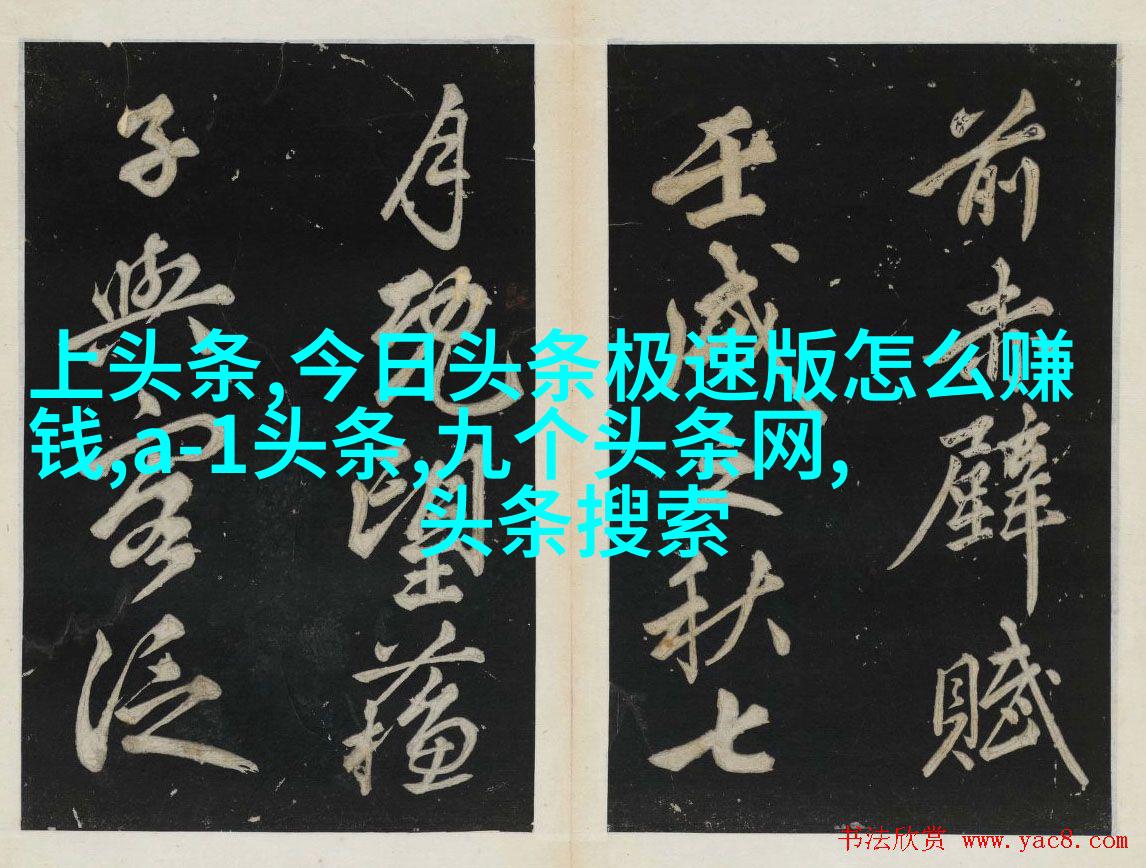 前赤壁賦
壬戌之秋七
月既望蘓
子與客泛
上头条,今日头条极速版怎么赚
钱,a-1头条,九个头条网,
头条搜索
书法欣赏 www.yac8.com